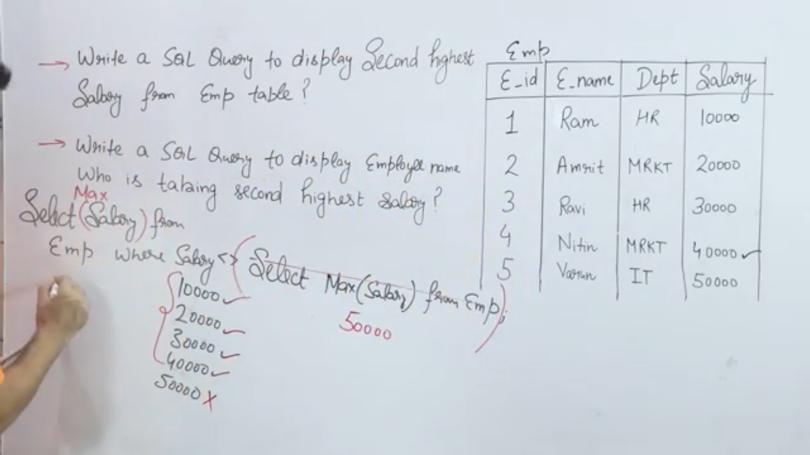 → Write a SQL Query to display Second highest
Salary from Emp table?
→ Write a SQL Query to display Employee name
Who is taking second highest salary?
Max
Select (Salary) from
Emp where Salary <> (Select Max(Salary) from Emp);
10000 ✓
20000 ✓
30000 ✓
40000 ✓
50000 X
50000
Emp
E_id E_name Dept Salary
1 Ram HR 10000
2 Amrit MRKT 20000
3 Ravi HR 30000
4 Nitin MRKT 40000 ✓
5 Varun IT 50000